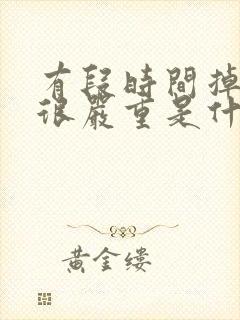 有段時間掉
很嚴重是什
黃金縷